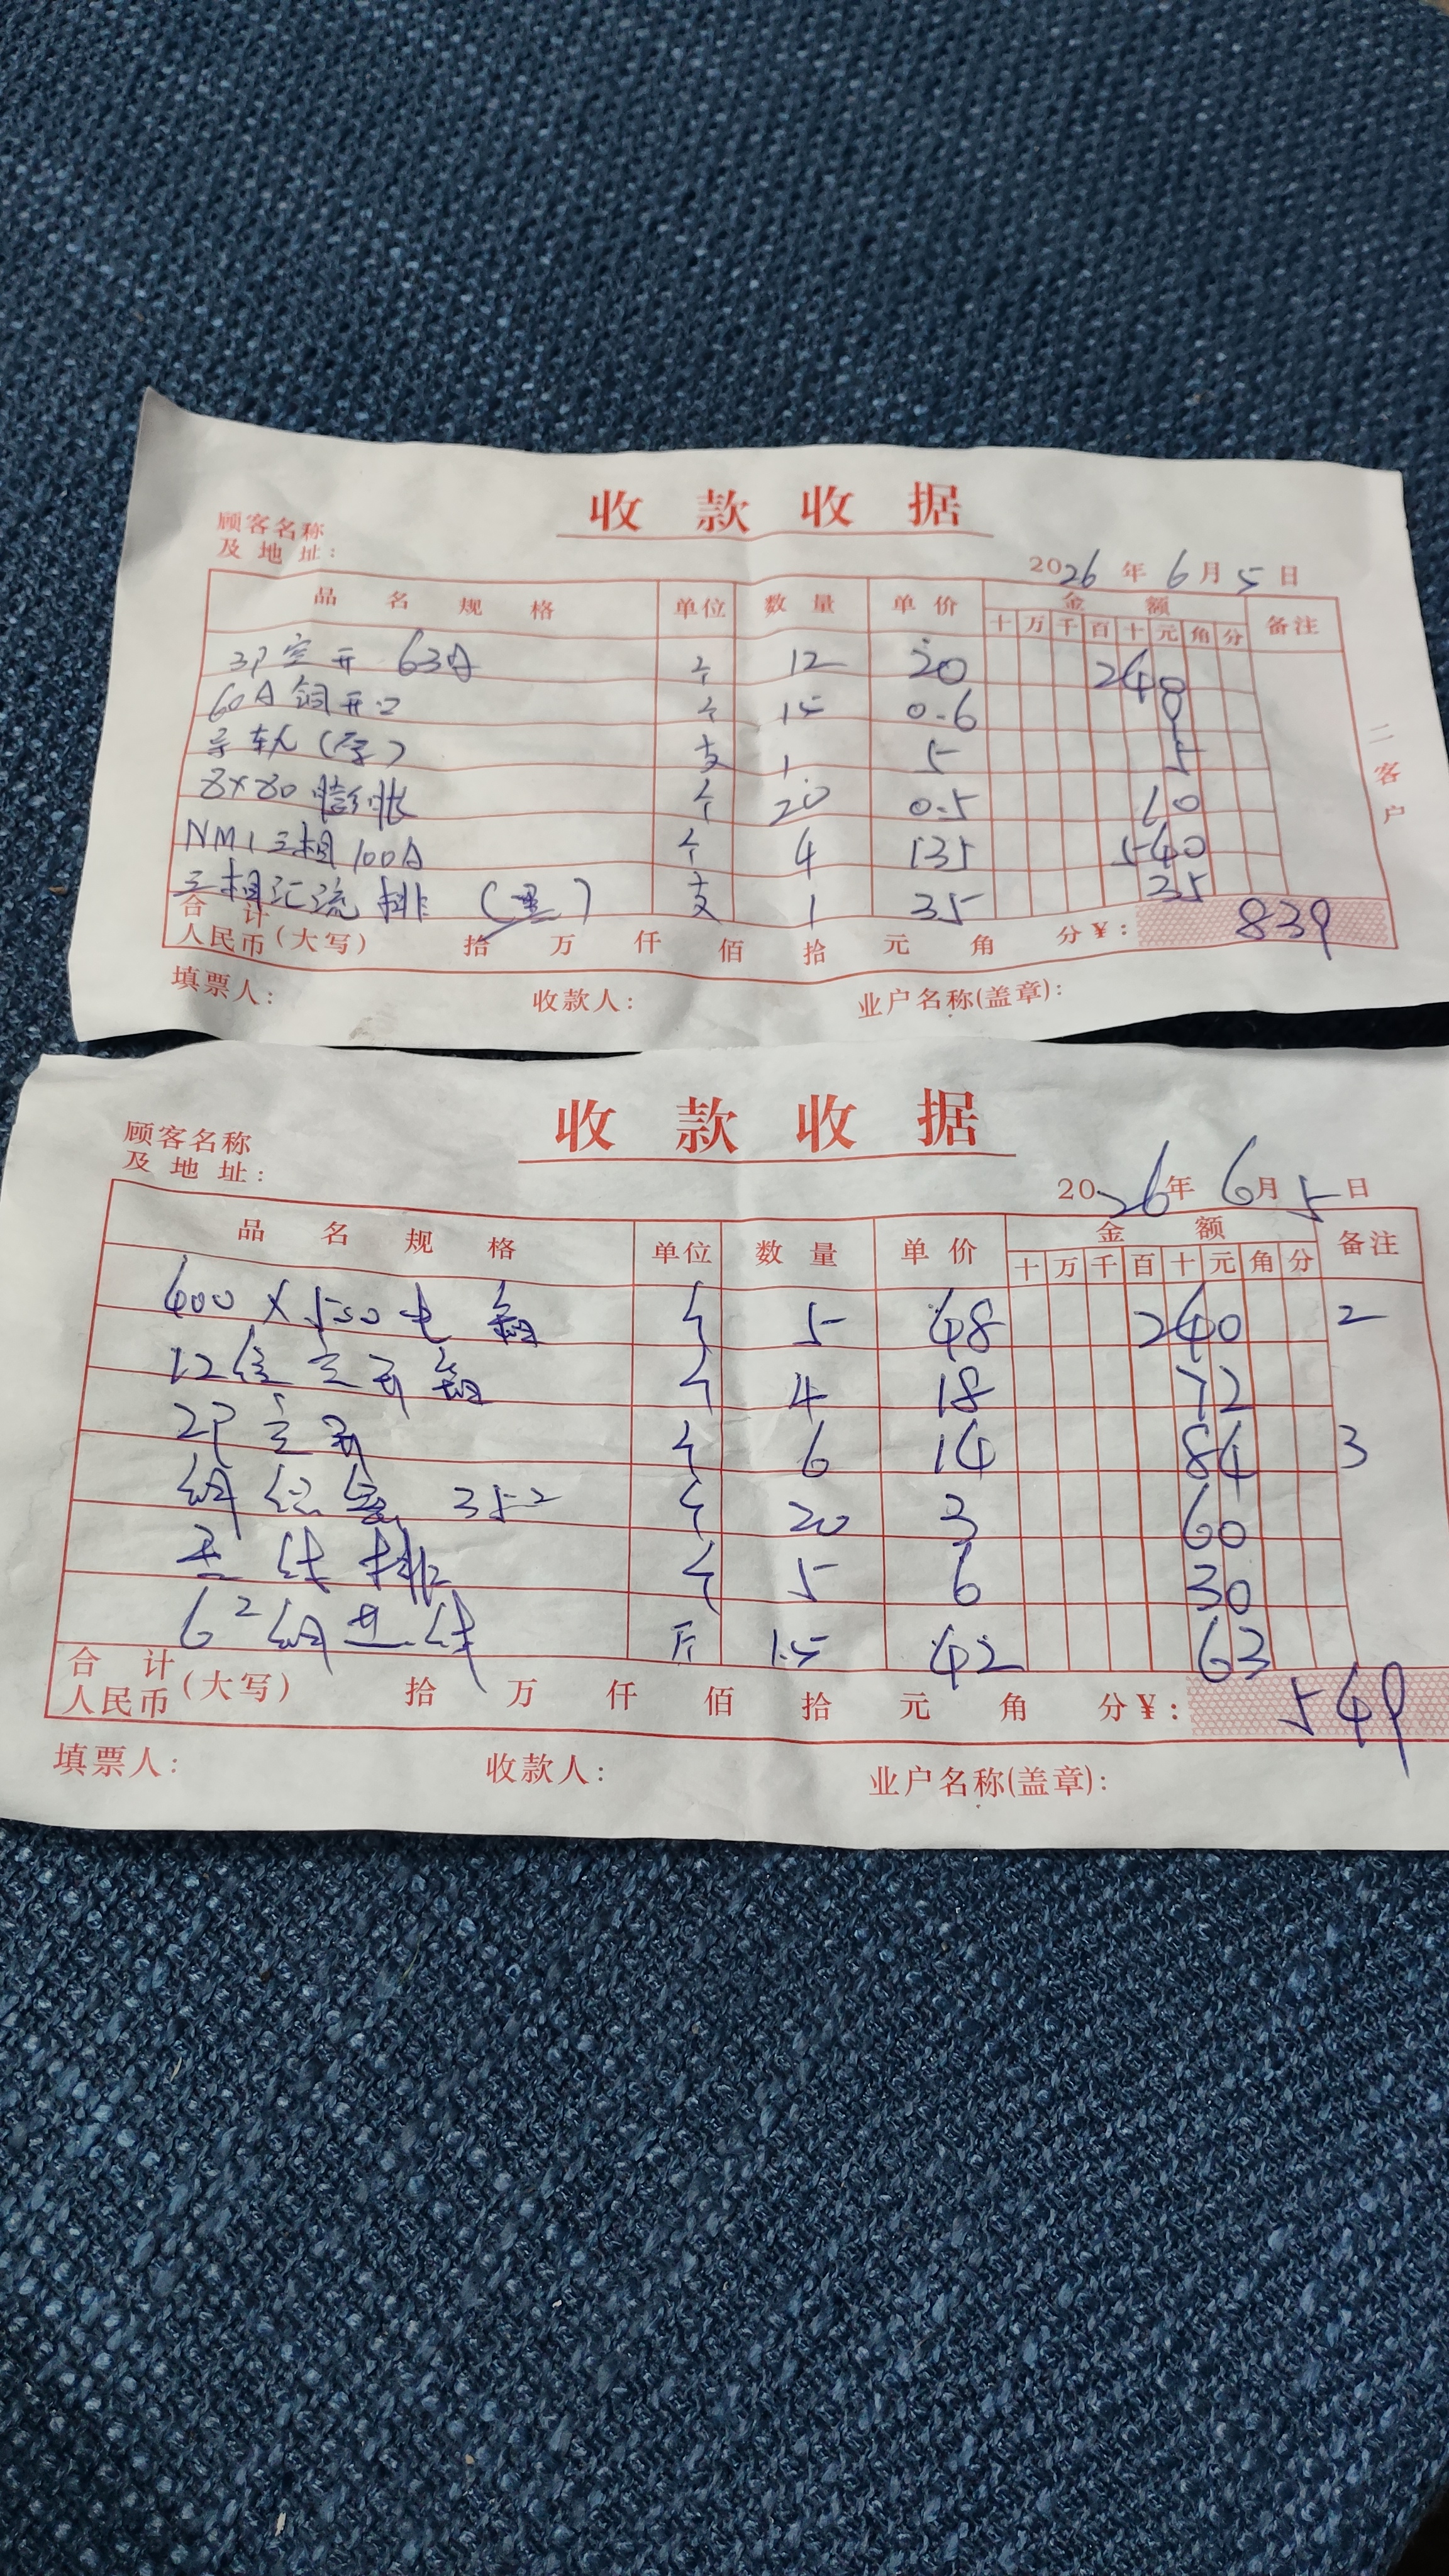 收款收据
顾客名称
及地址：
2026年6月5日
品名规格 单位 数量 单价 金额 备注
十 万 千 百 十 元 角 分
3P空开 63A 个 12 20 240
60A铜开口 个 15 0.6 9
导轨(厚) 支 1 5 5
8×80膨胀 个 20 0.5 10
NM1三相100A 个 4 135 540
三相汇流排 支 1 35 35
合计
人民币(大写) 拾 万 仟 佰 拾 元 角 分¥: 839
填票人： 收款人： 业户名称(盖章)：
二客户
收款收据
顾客名称
及地址：
2026年6月5日
品名规格 单位 数量 单价 金额 备注
十 万 千 百 十 元 角 分
400×500电箱 个 5 48 240 2
12位空开箱 个 4 18 72
2P空开 个 6 14 84 3
35² 个 20 3 60
排 个 5 6 30
6² 斤 1.5 42 63
合计
人民币(大写) 拾 万 仟 佰 拾 元 角 分¥: 549
填票人： 收款人： 业户名称(盖章)：